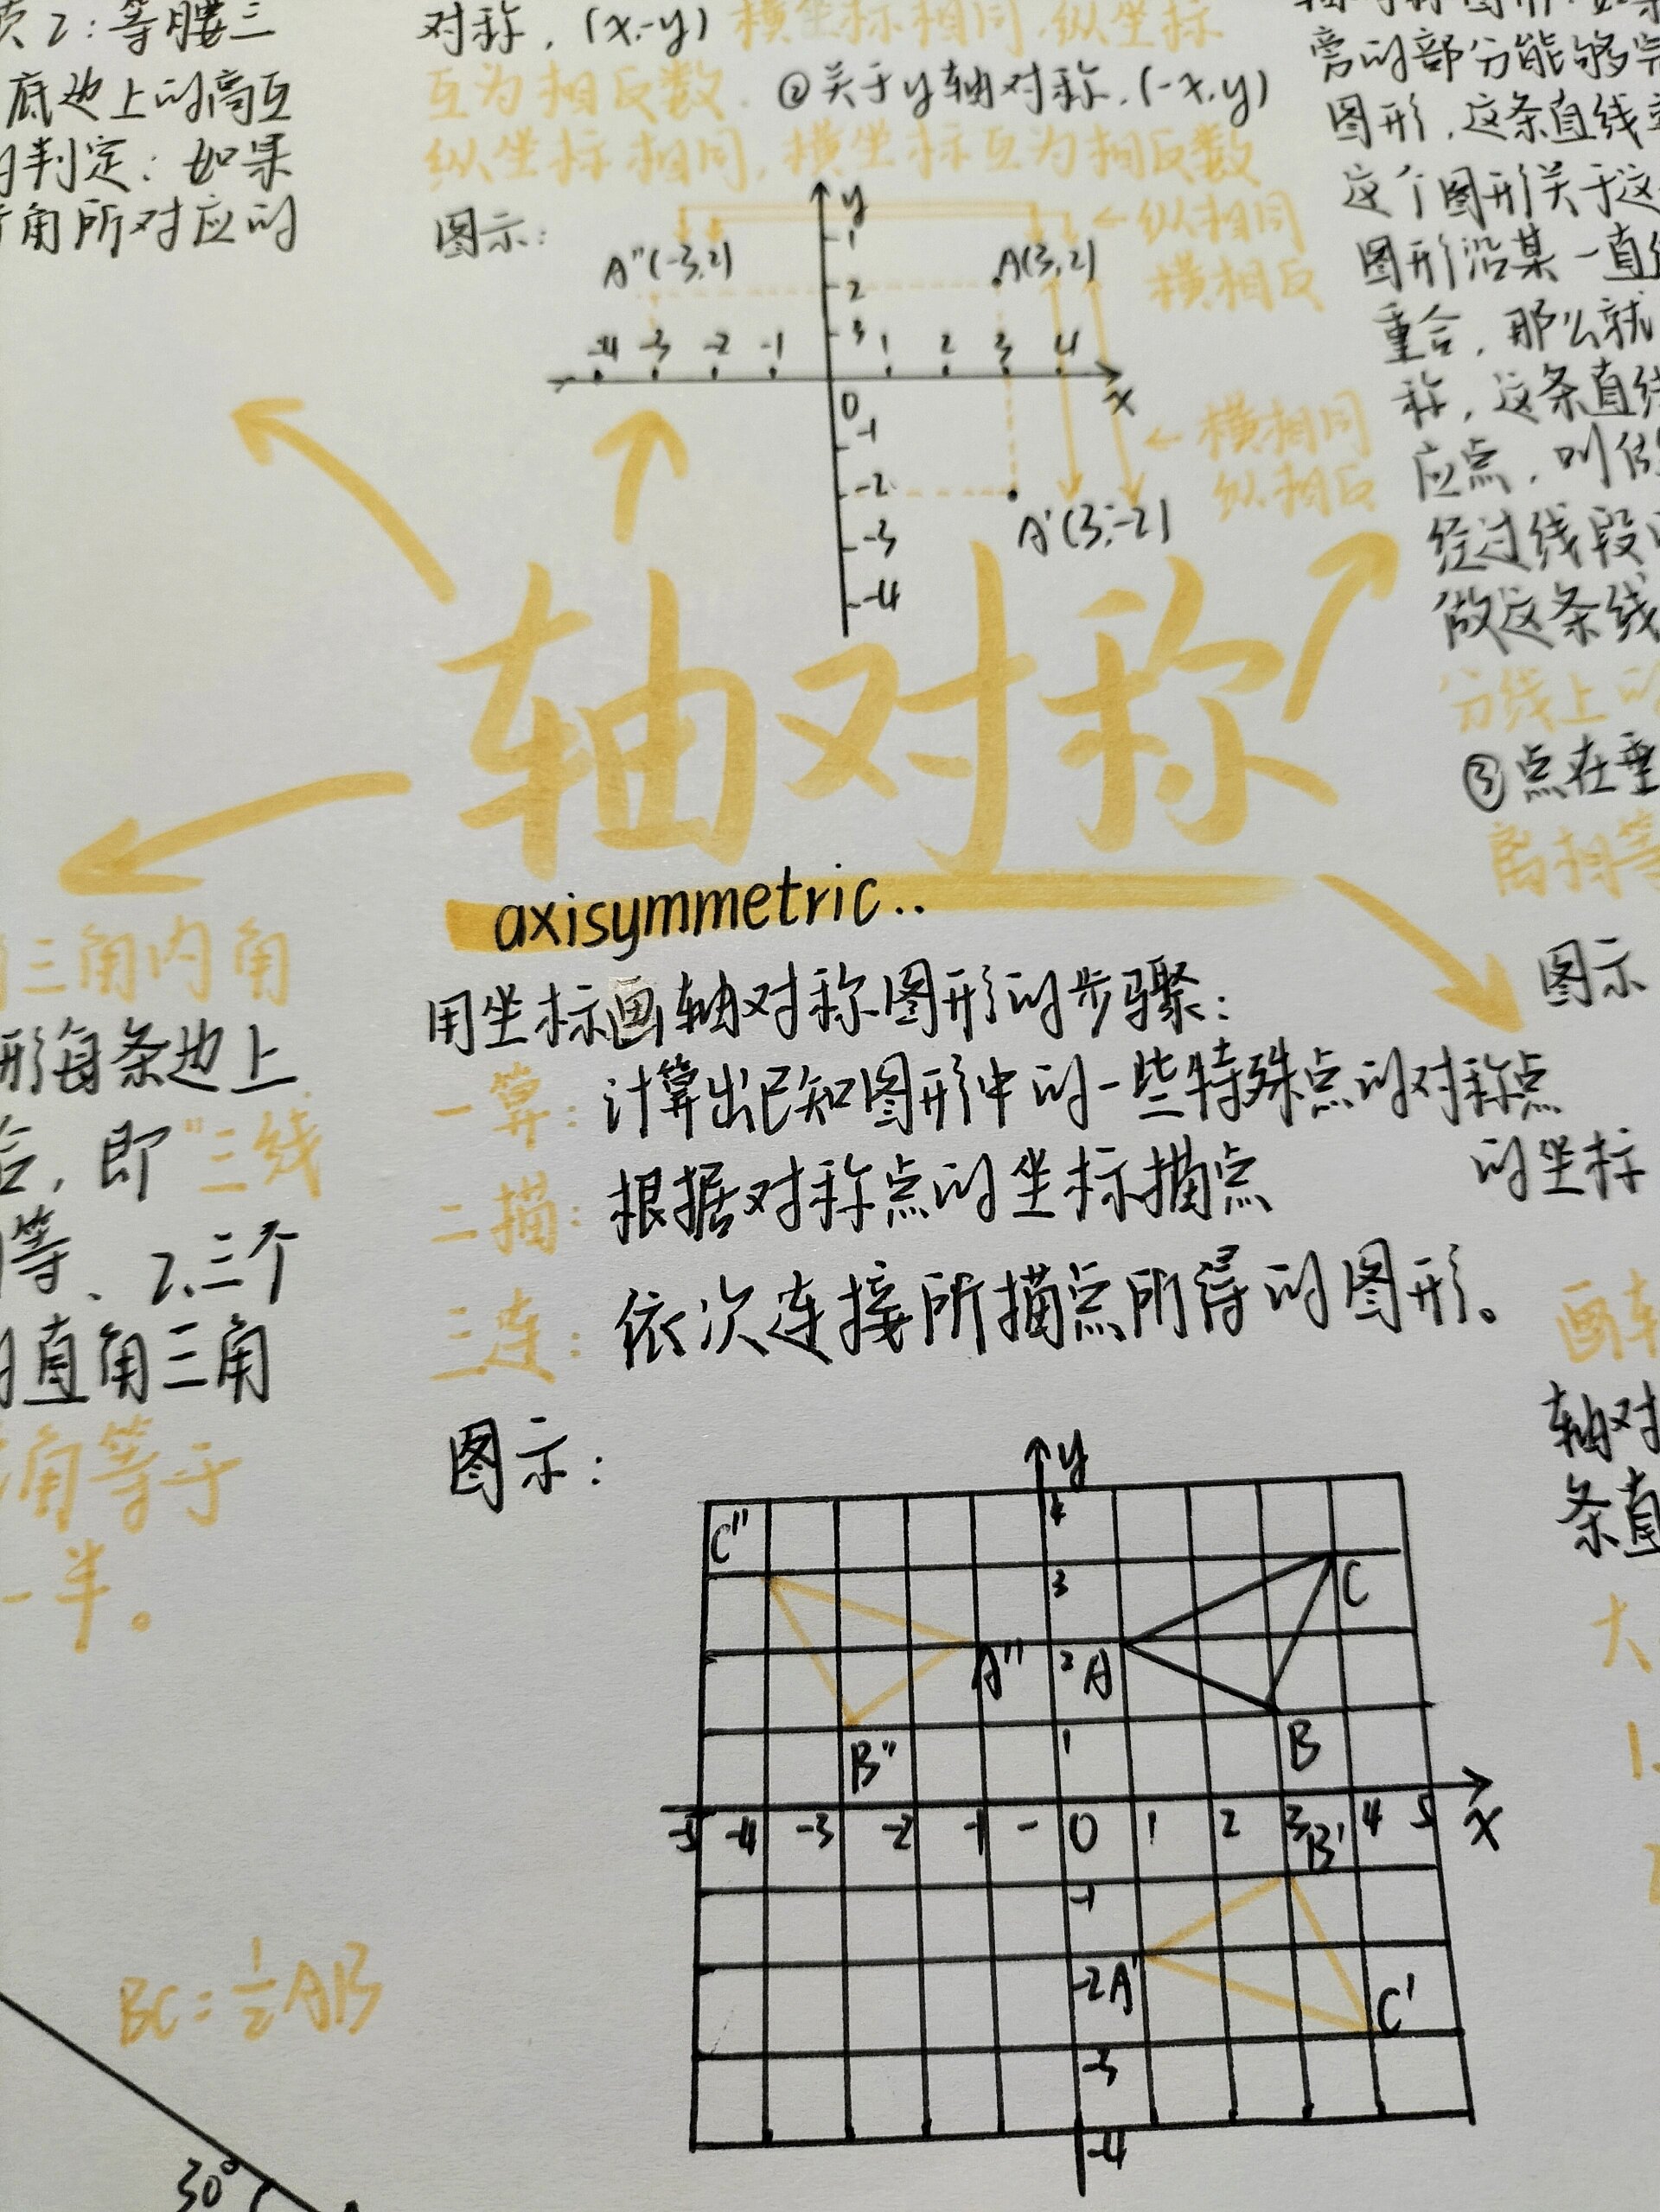 2：等腰三
底边上的高互
判定：如果
角所对应的
对称，(x,-y) 横坐标相同，纵坐标
互为相反数. ②关于y轴对称，(-x,y)
纵坐标相同，横坐标互为相反数
图示：
y
1
2
3
A"(-3,2)
A(3,2)
←纵相同
横相反
-4 -3 -2 -1
1 2 3 4
x
0
-1
-2
-3
-4
←横相同
纵相反
A'(3,-2)
旁的部分能够完
图形，这条直线
这个图形关于这
图形沿某一直线
重合，那么就
称，这条直线
应点，叫做
经过线段
做这条线
分线上的
③点在垂
离相等
图示
轴对称
axisymmetric..
用坐标画轴对称图形的步骤：
一算：计算出已知图形中的一些特殊点的对称点
的坐标
二描：根据对称点的坐标描点
三连：依次连接所描点所得的图形。
图示：
y
4
3
2
1
C"
A"
B"
A
B
C
-5 -4 -3 -2 -1 - 0 1 2 3 4 5 x
B'
-1
-2 A'
C'
-3
-4
三角内角
形每条边上
合，即"三线
等、2.三个
直角三角
角等于
一半。
BC=½AB
30°
画轴
轴对
条直
大
1.